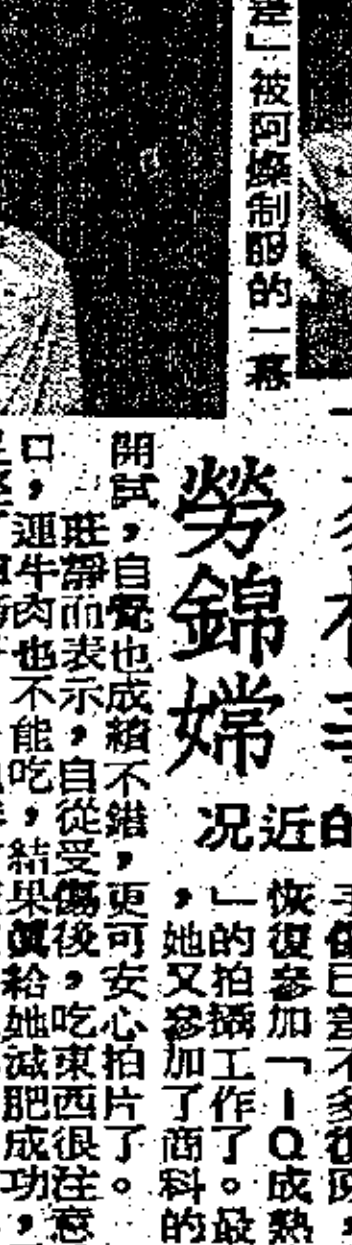 」被阿燦制服的一幕
勞錦嫦
的近況
恢復參加「IQ成熟
」的拍攝工作了。最
，她又參加了商科的
開試，自覺也成績不錯，更可安心拍片了。
莊靜而表示，自從受傷後，吃東西很注意
口，連牛肉也不能吃，結果真給她減肥成功，